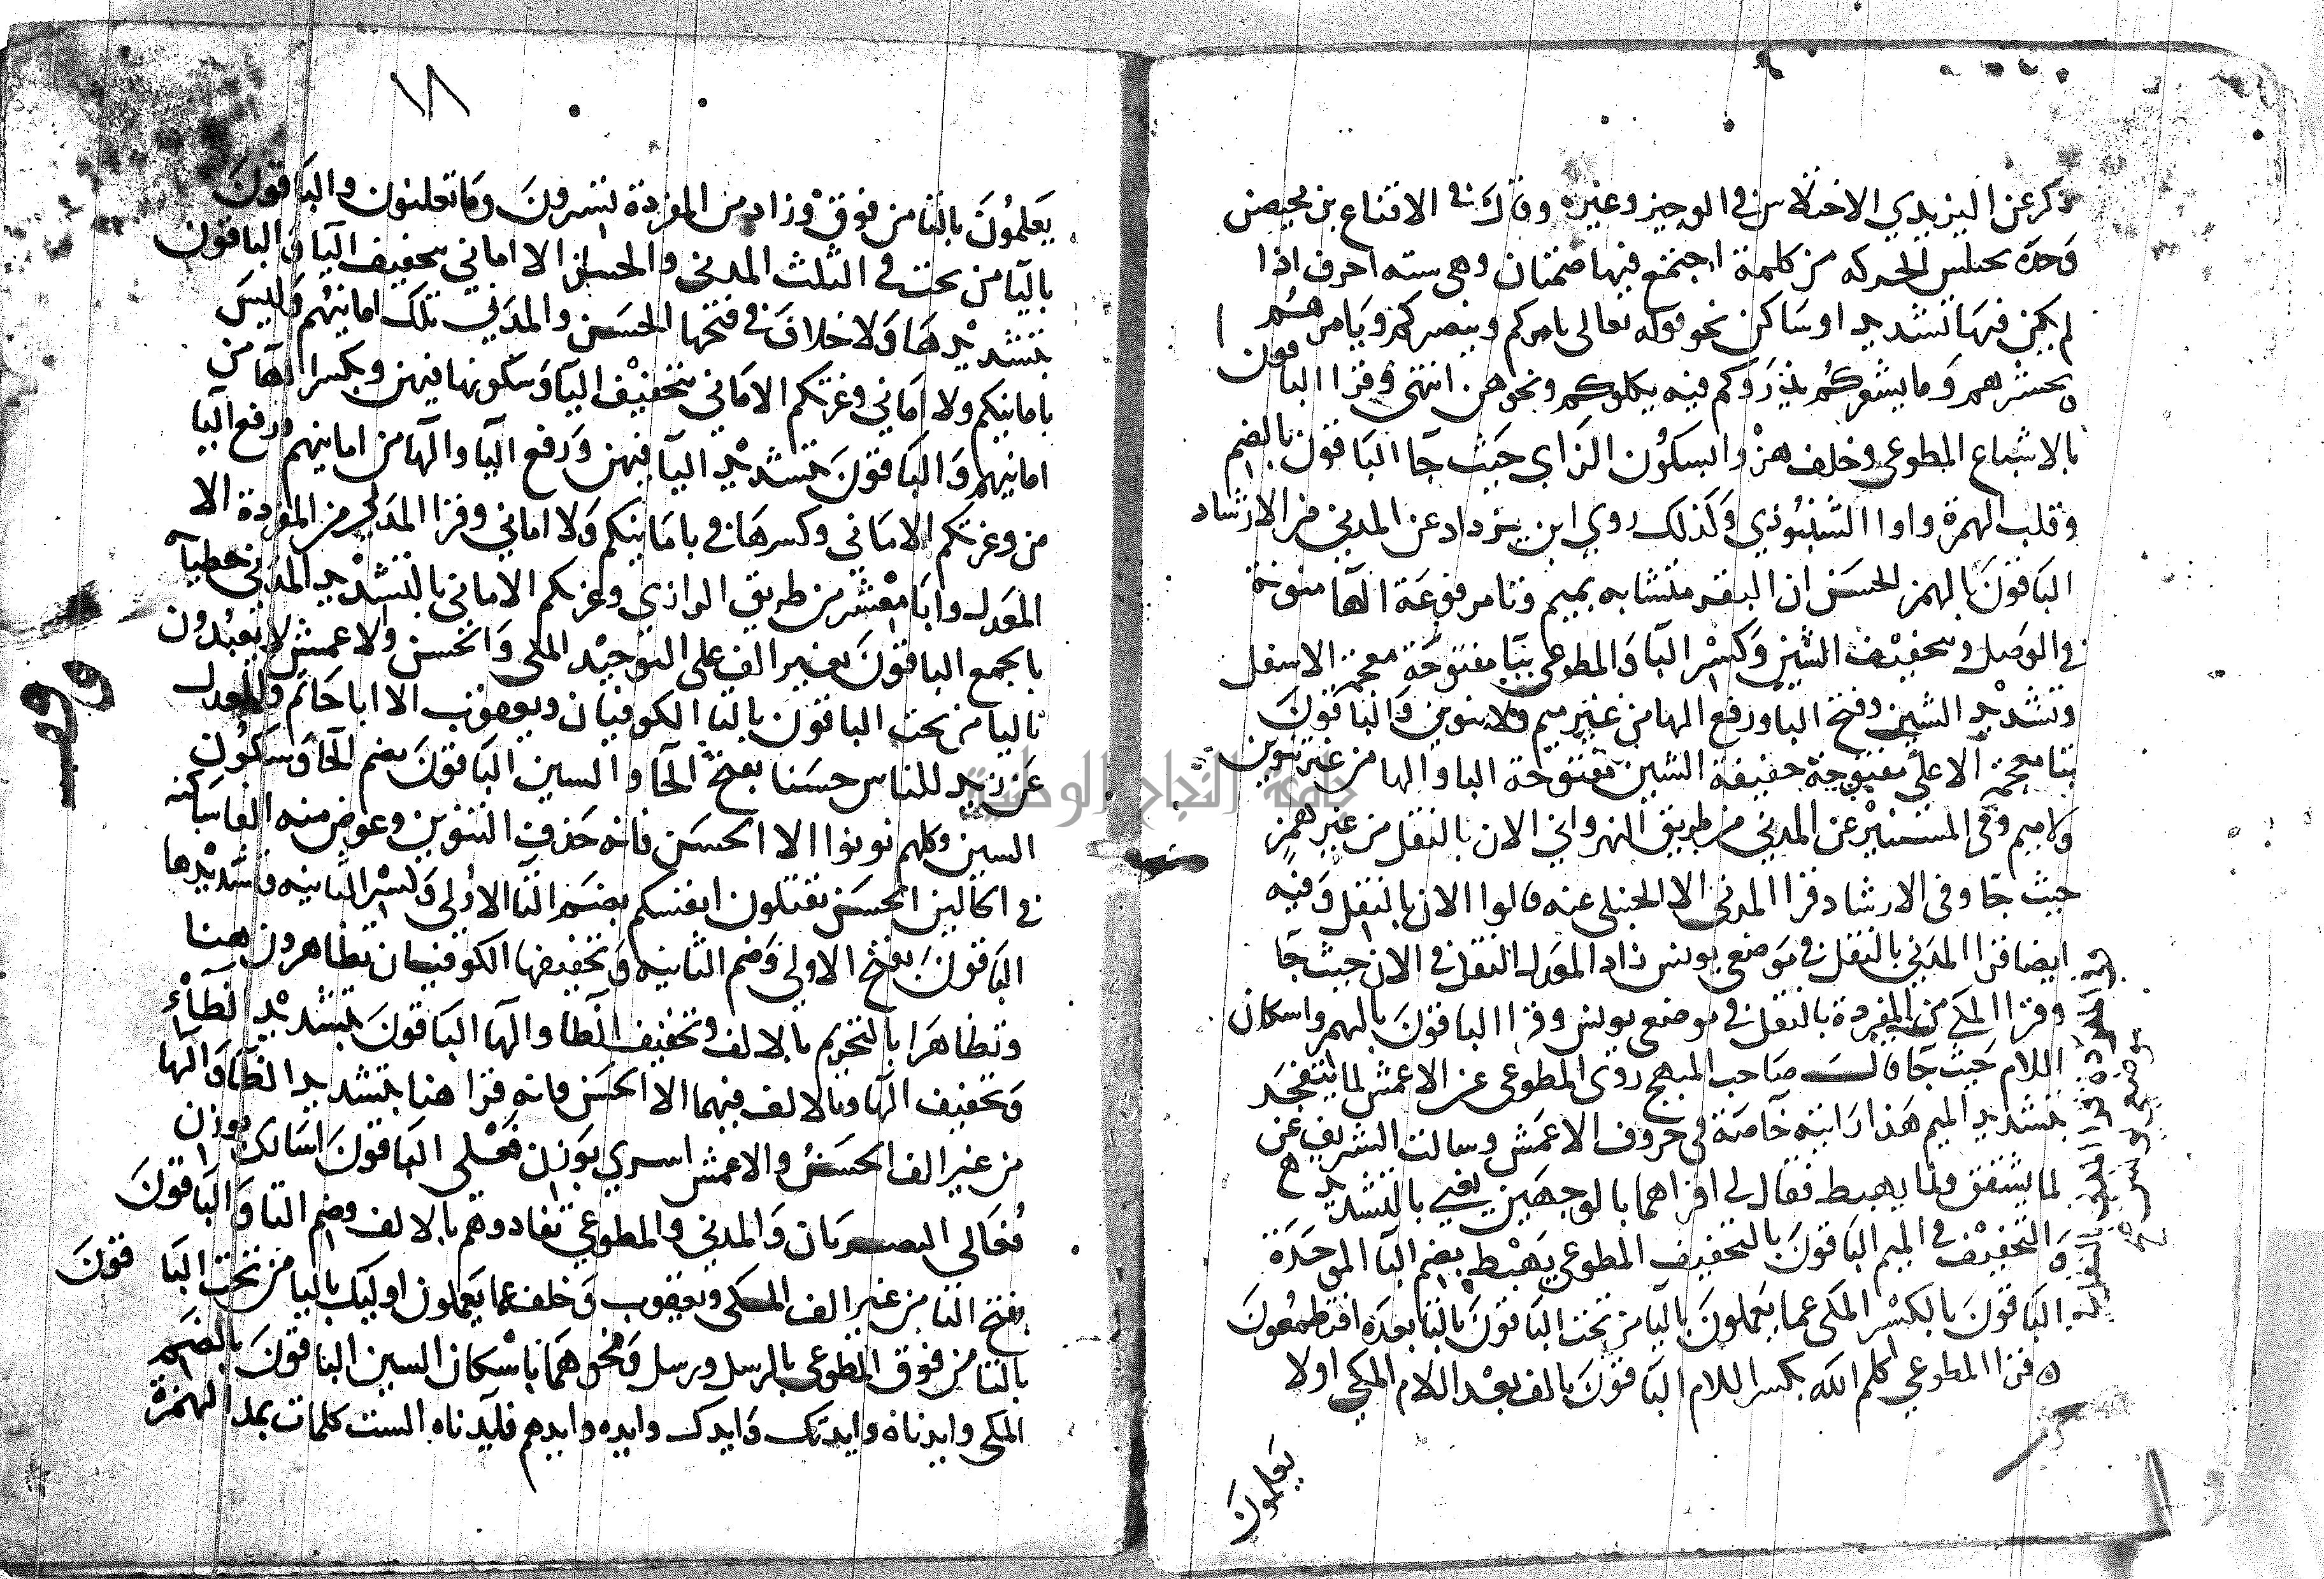 ذكر عن اليزيدي الاختلاس في الوجيز وغيره وقال في الاقناع بن محيصن
وحده يختلس الحركه من كلمة اجتمع فيها ضمتان وهي سته احرف اذا
لم يكن فيها تشديد او ساكن نحو قوله تعالى يامركم وينصركم ويامرهم
ويحشرهم وما يشعركم يذروكم فيه يكلوكم ونحوهن انتهى وقرا الباقون
بالاشباع المطوعي وخلف هزوا بسكون الزاي حيث جآ الباقون بالضم
وقلب الهمزة واوا الشنبوذي وكذلك روي ابن يزداد عن المدني من الارشاد
الباقون بالهمز الحسن ان البقر متشابه بميم وتا مرفوعة الها منونة
في الوصل وتخفيف الشين وكسر البا والمطوعي بيا مفتوحة معجمة الاسفل
وتشديد الشين وفتح البا ورفع الها من غير ميم ولا تنوين والباقون
بتا معجمة الاعلى مفتوحة خفيفة الشين مفتوحة البا والها من غير تنوين
ولا ميم وفي المستنير عن المدني من طريق النهرواني الان بالنقل من غير همز
حيث جا وفي الارشاد قرا المدني الا الحنبلي عنه قالوا الان بالنقل وفيه
ايضا قرا المدني بالنقل في موضعي يونس زاد المعدل النقل في الان حيث جآ
وقرا المكي من المفردة بالنقل في موضعي يونس وقرا الباقون بالهمز واسكان
اللام حيث جا قال صاحب المبهج روى المطوعي عن الاعمش لما يتفجر
بتشديد الميم هذا رايته خاصة في حروف الاعمش وسالت الشريف عن
لما يشقق ولما يهبط فقال لي اقراهما بالوجهين يعني بالتشديد
والتخفيف في الميم الباقون بالتخفيف المطوعي يهبط بضم البا الموحدة
الباقون بالكسر المكي عما يعملون باليا من تحت الباقون بالتا بعده افتطمعون
قرا المطوعي كلم الله بكسر اللام الباقون بالف بعد اللام المكي اولا
يعلمون
١٨
يعلمون بالتا من فوق وزاد من المفردة تسرون وما تعلنون والباقون
باليا من تحت في الثلث المدني والحسن الا اماني بتخفيف اليا والباقون
بتشديدها ولا خلاف في فتحها الحسن والمدني تلك امانيهم وليس
بامانيكم ولا اماني وغرتكم الاماني بتخفيف اليا وسكونها فيهن وبكسر الها من
امانيهم والباقون بتشديد اليا فيهن ورفع اليا والها من امانيهم ورفع اليا
من وغرتكم الاماني وكسرها في بامانيكم ولا اماني وقرا المدني من المفردة الا
المعدل وابا معشر من طريق الرازي وغرتكم الاماني بالتشديد المدني خطيآته
بالجمع الباقون بغير الف على التوحيد المكي والحسن والاعمش لا يعبدون
باليا من تحت الباقون بالتا الكوفيان ويعقوب الا ابا حاتم والمعدل
عن زيد للناس حسنا بفتح الحا والسين الباقون بضم الحا وسكون
السين وكلهم نونوا الا الحسن فانه حذف التنوين وعوض منه الفا ساكنه
في الحالين الحسن تقتلون انفسكم بضم التا الاولى وكسر الثانيه وتشديدها
الباقون بفتح الاولي وضم الثانيه وتخفيفها الكوفيان تظاهرون هنا
وتظاهرا بالتحريم بالالف وتخفيف الظا والها الباقون بتشديد الظاء
وتخفيف الها وبالالف فيهما الا الحسن فانه قرا هنا بتشديد الظا والها
من غير الف الحسن والاعمش اسري بوزن فعلى الباقون اسارى بوزن
فعالى البصريان والمدني والمطوعي تفادوهم بالالف وضم التا والباقون
بفتح التا من غير الف المكي ويعقوب وخلف عما يعملون اوليك باليا من تحت الباقون
بالتا من فوق المطوعي بالرسل ورسل ونحوهما باسكان السين الباقون بالضم
المكي وايدناه وايدتك وايدك وايده وايدهم فايدناه الست كلمات بمد الهمزة